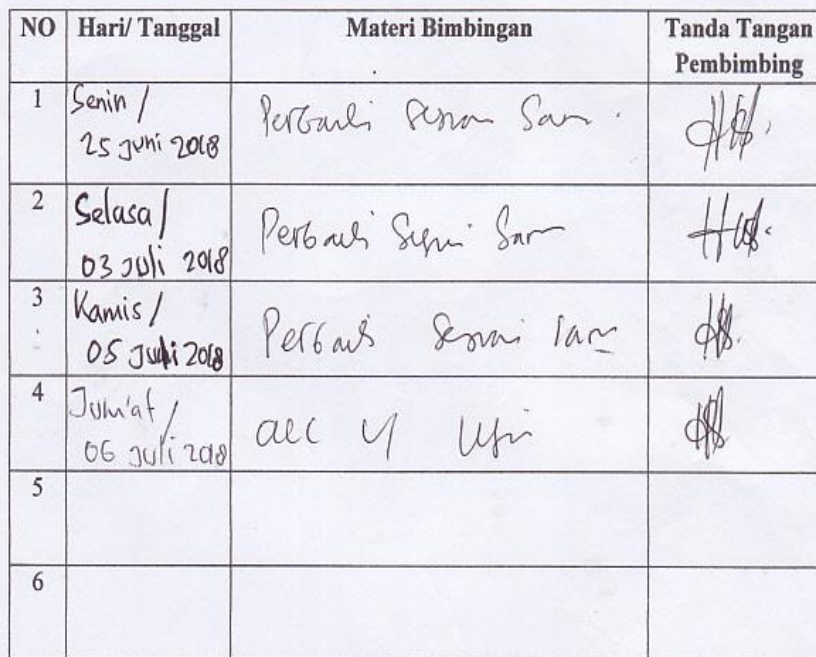 NO Hari/ Tanggal Materi Bimbingan Tanda Tangan
Pembimbing
1 Senin /
25 Juni 2018
Perbaiki Sesuai Saran
2 Selasa /
03 Juli 2018
Perbaiki Sesuai Saran
3 Kamis /
05 Juli 2018
Perbaiki Sesuai Saran
4 Jum'at /
06 Juli 2018
acc u/ Ujian
5
6